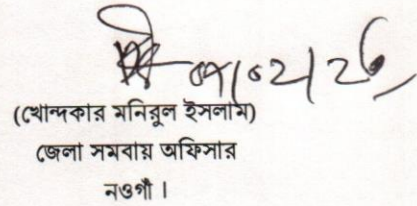 (খোন্দকার মনিরুল ইসলাম)
জেলা সমবায় অফিসার
নওগাঁ।